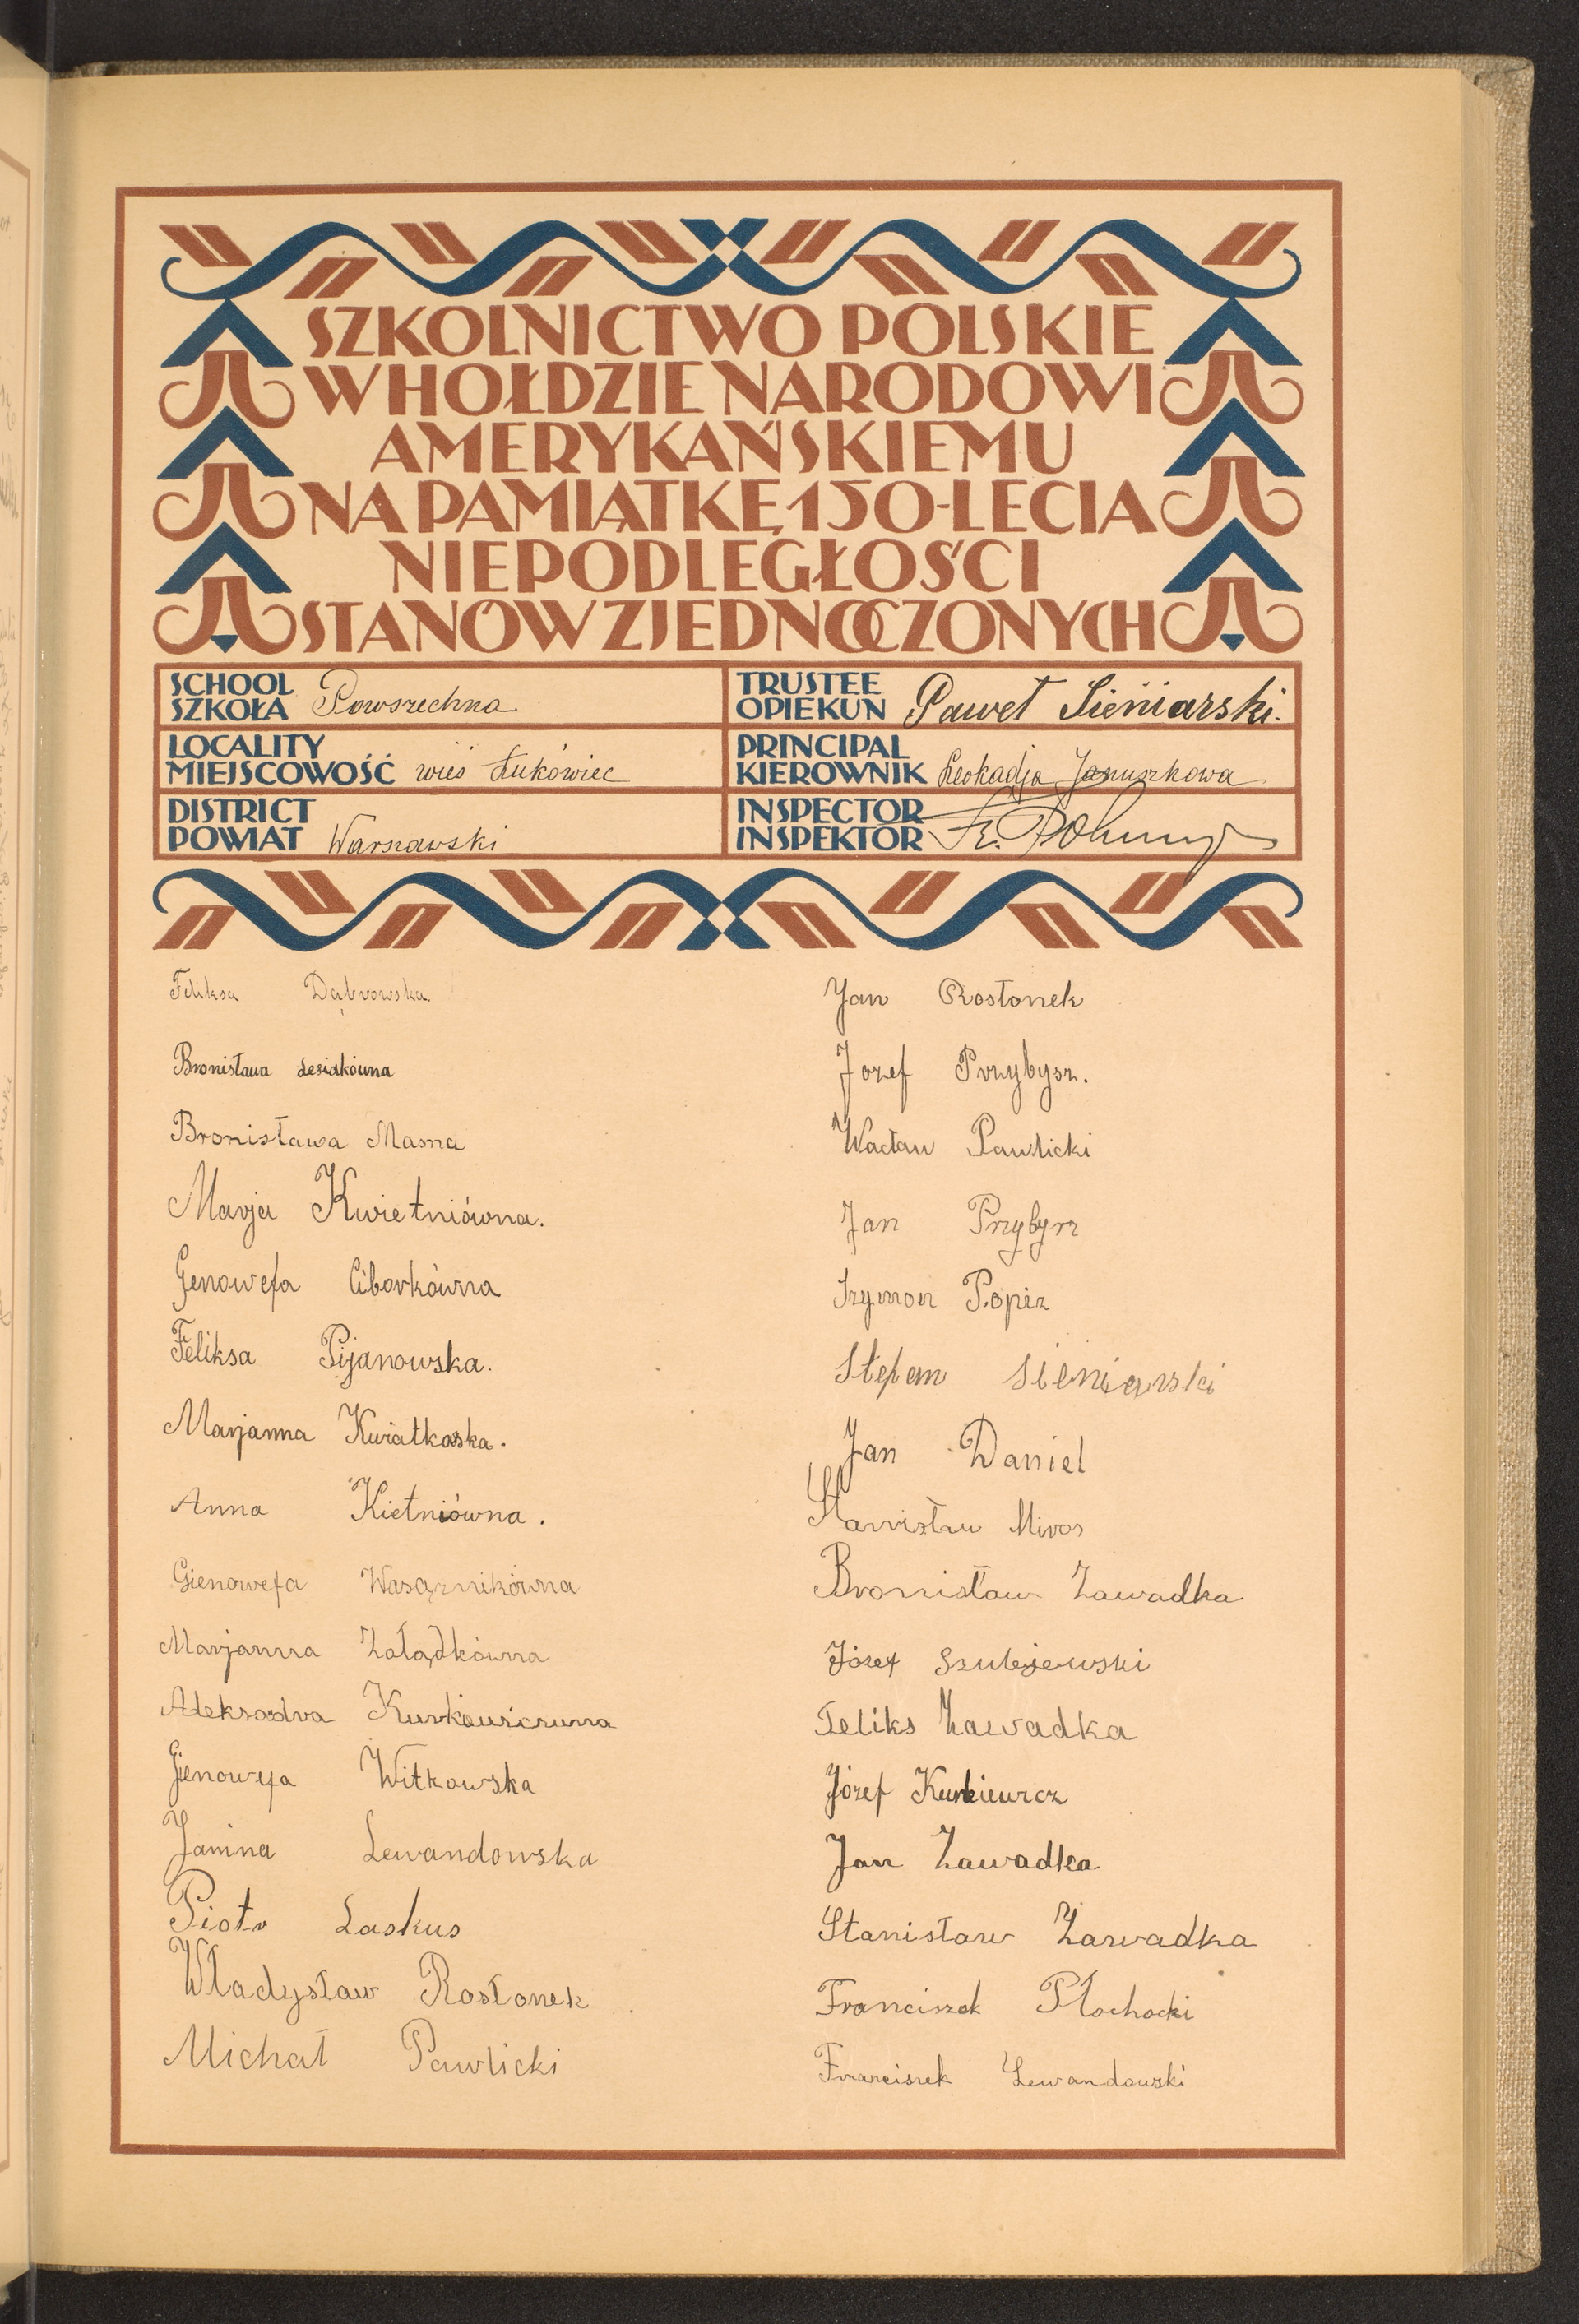 SZKOLNICTWO POLSKIE
W HOŁDZIE NARODOWI
AMERYKAŃSKIEMU
NA PAMIĄTKĘ 150-LECIA
NIEPODLEGŁOŚCI
STANÓW ZJEDNOCZONYCH
SCHOOL
SZKOŁA Powszechna
LOCALITY
MIEJSCOWOŚĆ wieś Łukówiec
DISTRICT
POWIAT Warszawski
TRUSTEE
OPIEKUN Paweł Sieniarski.
PRINCIPAL
KIEROWNIK Leokadja Januszkowa
INSPECTOR
INSPEKTOR Fr.
Feliksa Dąbrowska.
Bronisława Lesiakówna
Bronisława Masna
Marja Kwietniówna.
Genowefa Ciborkówna
Feliksa Pijanowska.
Marjanna Kwiatkoska.
Anna Kietniówna.
Gienowefa Wasąznikówna
Marjanna Załądkówna
Aleksadra
Gienowefa Witkowska
Janina Lewandowska
Piotr Laskus
Władysław Rosłonek
Michał Pawlicki
Jan Rosłonek
Jozef Przybysz.
Wacław Pawlicki
Jan Przybysz
Szymon Popiz
Stefan Sieniarski
Jan Daniel
Stanisław Miros
Bronisław Zawadka
Józef Szulejewski
Feliks Zawadka
Józef Kurkiewicz
Jan Zawadka
Stanisław Zawadka
Franciszek Płochocki
Franciszek Lewandowski